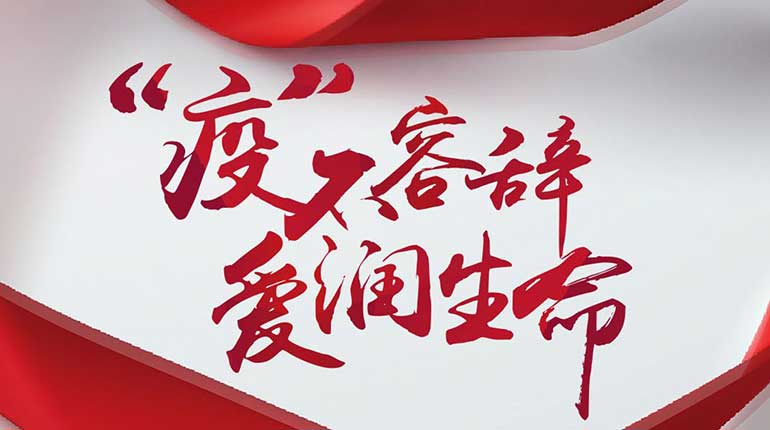 “疫”不容辞
爱润生命